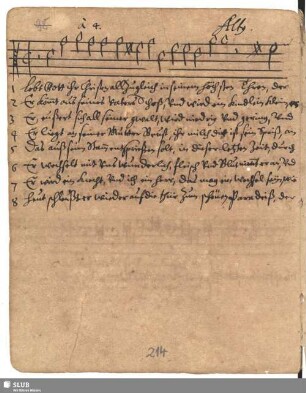 à 4. Alt9
1 lobt Gott ihr Christen all zugleich in seinem höchsten Thron, der
2 Er kömt aus seines Vaters Schoß, Und wird ein kindlein klein
3 Er eusert sich all seiner gewalt, wird niedrig Und gering, Und
4 Er ligt an seiner Mutter Brust, ihr milch die ist sein Speiß, an
5 Das auß seim Stam entspriessen solt, in dieser letzten Zeit, durch
6 Er wechselt mit Uns wunderlich, fleisch Und Blut
7 Er wird ein knecht, Und ich ein herr, das mag ein wechsel sein, wie
8 Heut schleust er wieder auf die thür Zum schönen Paradeiß, der
214
SLUB